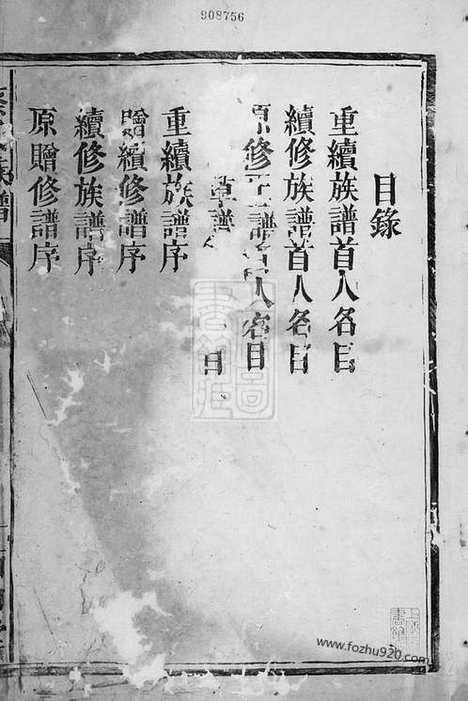 908756
目錄
重續族譜首人名目
續修族譜首人名目
原修譜首人名目
草譜 目
重續族譜序
贈續修譜序
續修族譜序
原贈修譜序
族譜
www.fozhu920.com